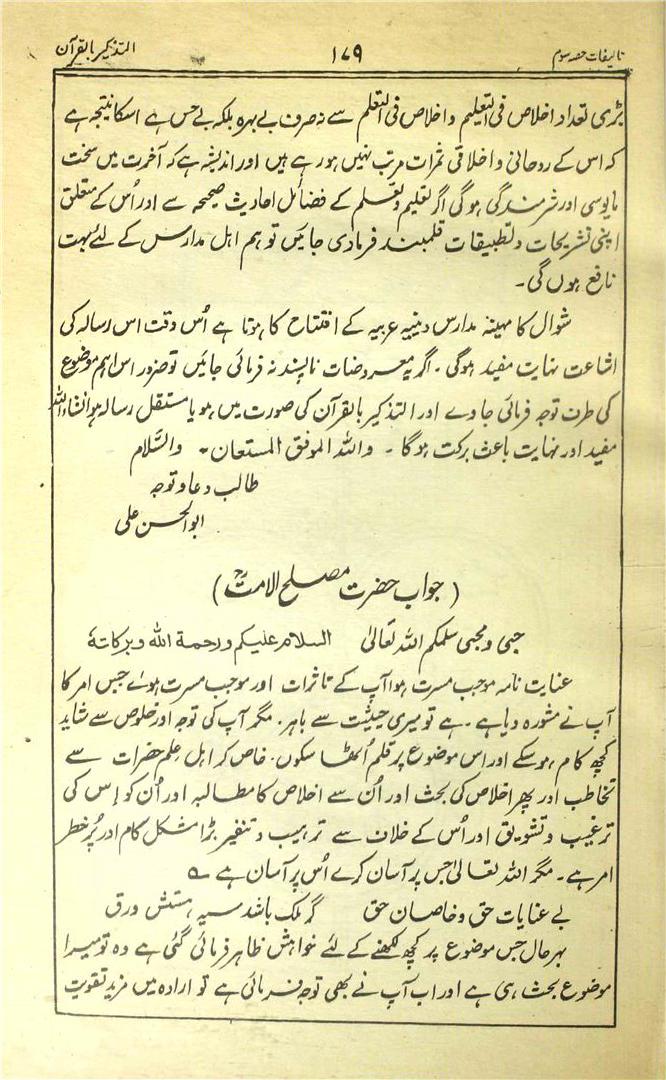 تالیفات حصہ سوم ۱۷۹ التذکیر بالقرآن
بڑی تعداد اخلاص فی التعلیم و اخلاص فی التعلم سے نہ صرف بے بہرہ بلکہ بے حس ہے اسکا نتیجہ ہے
کہ اس کے روحانی و اخلاقی ثمرات مرتب نہیں ہو رہے ہیں اور اندیشہ ہے کہ آخرت میں سخت
مایوسی اور شرمندگی ہوگی اگر تعلیم و تعلم کے فضائل احادیث صحیحہ سے اور اُس کے متعلق
اپنی تشریحات و تطبیقات قلمبند فرمادی جائیں تو ہم اہل مدارس کے لئے بہت
نافع ہوں گی۔
شوال کا مہینہ مدارس دینیہ عربیہ کے افتتاح کا ہوتا ہے اُس وقت اس رسالہ کی
اشاعت نہایت مفید ہوگی۔ اگر یہ معروضات ناپسند نہ فرمائی جائیں تو ضرور اس اہم موضوع
کی طرف توجہ فرمائی جاوے اور التذکیر بالقرآن کی صورت میں ہو یا مستقل رسالہ ہو انشاءاللہ
مفید اور نہایت باعث برکت ہوگا ۔ واللہ الموفق المستعان ۔ والسّلام
طالب دعا و توجہ
ابوالحسن علی
(جواب حضرت مصلح الامتؒ)
حبی و محبی سلمکم اللہ تعالیٰ السلام علیکم ورحمۃ اللہ وبرکاتہٗ
عنایت نامہ موجب مسرت ہوا آپ کے تاثرات اور موجب مسرت ہوئے جس امر کا
آپ نے مشورہ دیا ہے۔ ہے تو میری حیثیت سے باہر۔ مگر آپ کی توجہ اور خلوص سے شاید
کچھ کام ہوسکے اور اس موضوع پر قلم اُٹھا سکوں۔ خاص کر اہل علم حضرات سے
تخاطب اور پھر اخلاص کی بحث اور اُن سے اخلاص کا مطالبہ اور اُن کو اِس کی
ترغیب و تشویق اور اُس کے خلاف سے ترہیب و تنفیر بڑا مشکل کام اور پُر خطر
امر ہے۔ مگر اللہ تعالیٰ جس پر آسان کرے اُس پر آسان ہے ؎
بے عنایات حق و خاصان حق گر ملک باشد سیہ ہستش ورق
بہر حال جس موضوع پر کچھ لکھنے کے لئے خواہش ظاہر فرمائی گئی ہے وہ تو میرا
موضوع بحث ہی ہے اور اب آپ نے بھی توجہ فرمائی ہے تو ارادہ میں مزید تقویت